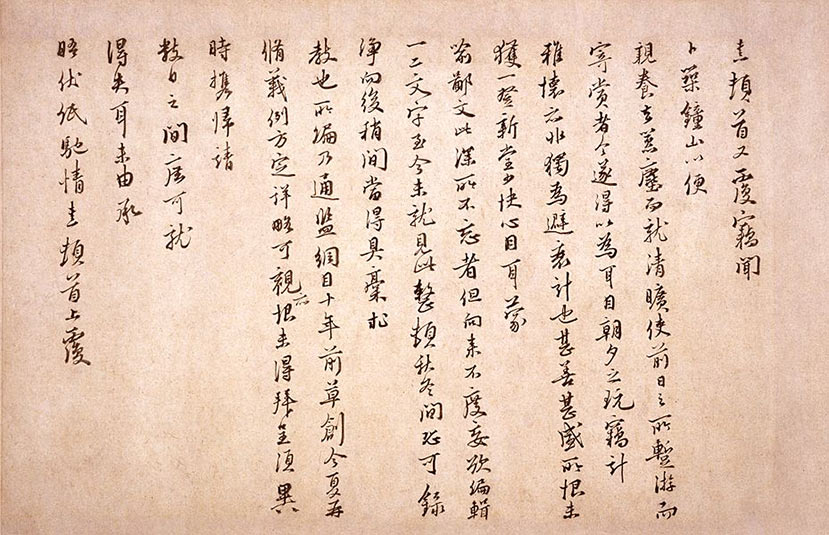 熹頓首又覆竊聞
卜築鐘山以便
親養去囂塵而就清曠使前日之所暫游而
寄賞者今遂得以為耳目朝夕之玩竊計
雅懷亦非獨為避衰計也甚善甚盛所恨未
獲一登新堂少快心目耳蒙
喻鄙文此深所不忘者但向來不度妄欲編輯
一二文字至今未就見此整頓秋冬間恐可錄
淨向後稍間當得具稾求
教也所編乃通鑑綱目十年前草創今夏再
脩義例方定詳略可觀亦恨未得拜呈須異
時攜歸請
數日之間庶可就
得失耳未由承
晤伏紙馳情熹頓首上覆